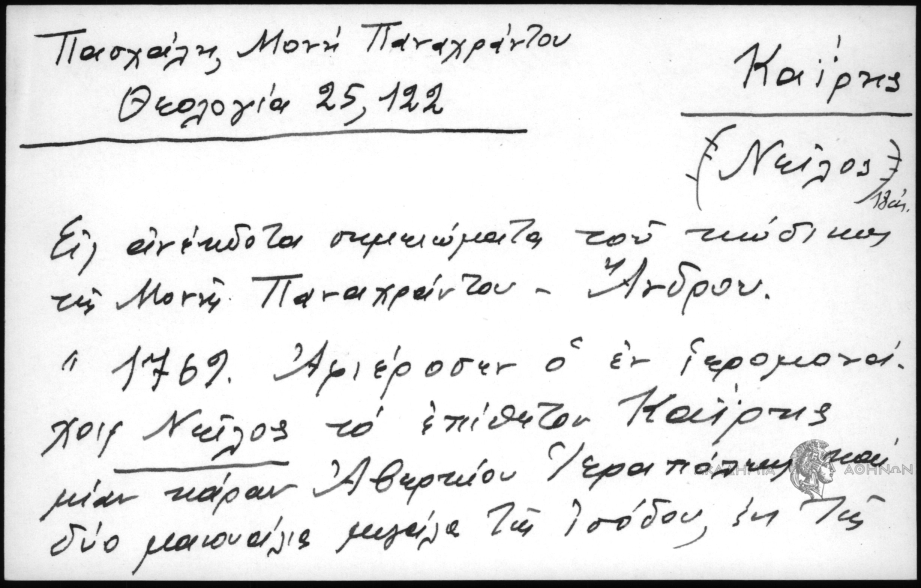 Πασχάλη, Μονή Παναχράντου
Θεολογία 25, 122
Καΐρης
(Νεῖλος)
Εἰς ἀνέκδοτα σημειώματα τοῦ κώδικος
τῆς Μονῆς Παναχράντου - Ἄνδρου.
" 1769. Ἀφιέροσεν ὁ ἐν ἱερομονά-
χοις Νεῖλος τό ἐπίθετον Καΐρης
μίαν κάραν Ἀβερκίου Ἱεραπόλεως καί
δύο μανουάλια μεγάλα τῆς Ἰσόδου, ἐκ τῆς
ΑΚΑΔΗΜΙΑ ΑΘΗΝΩΝ